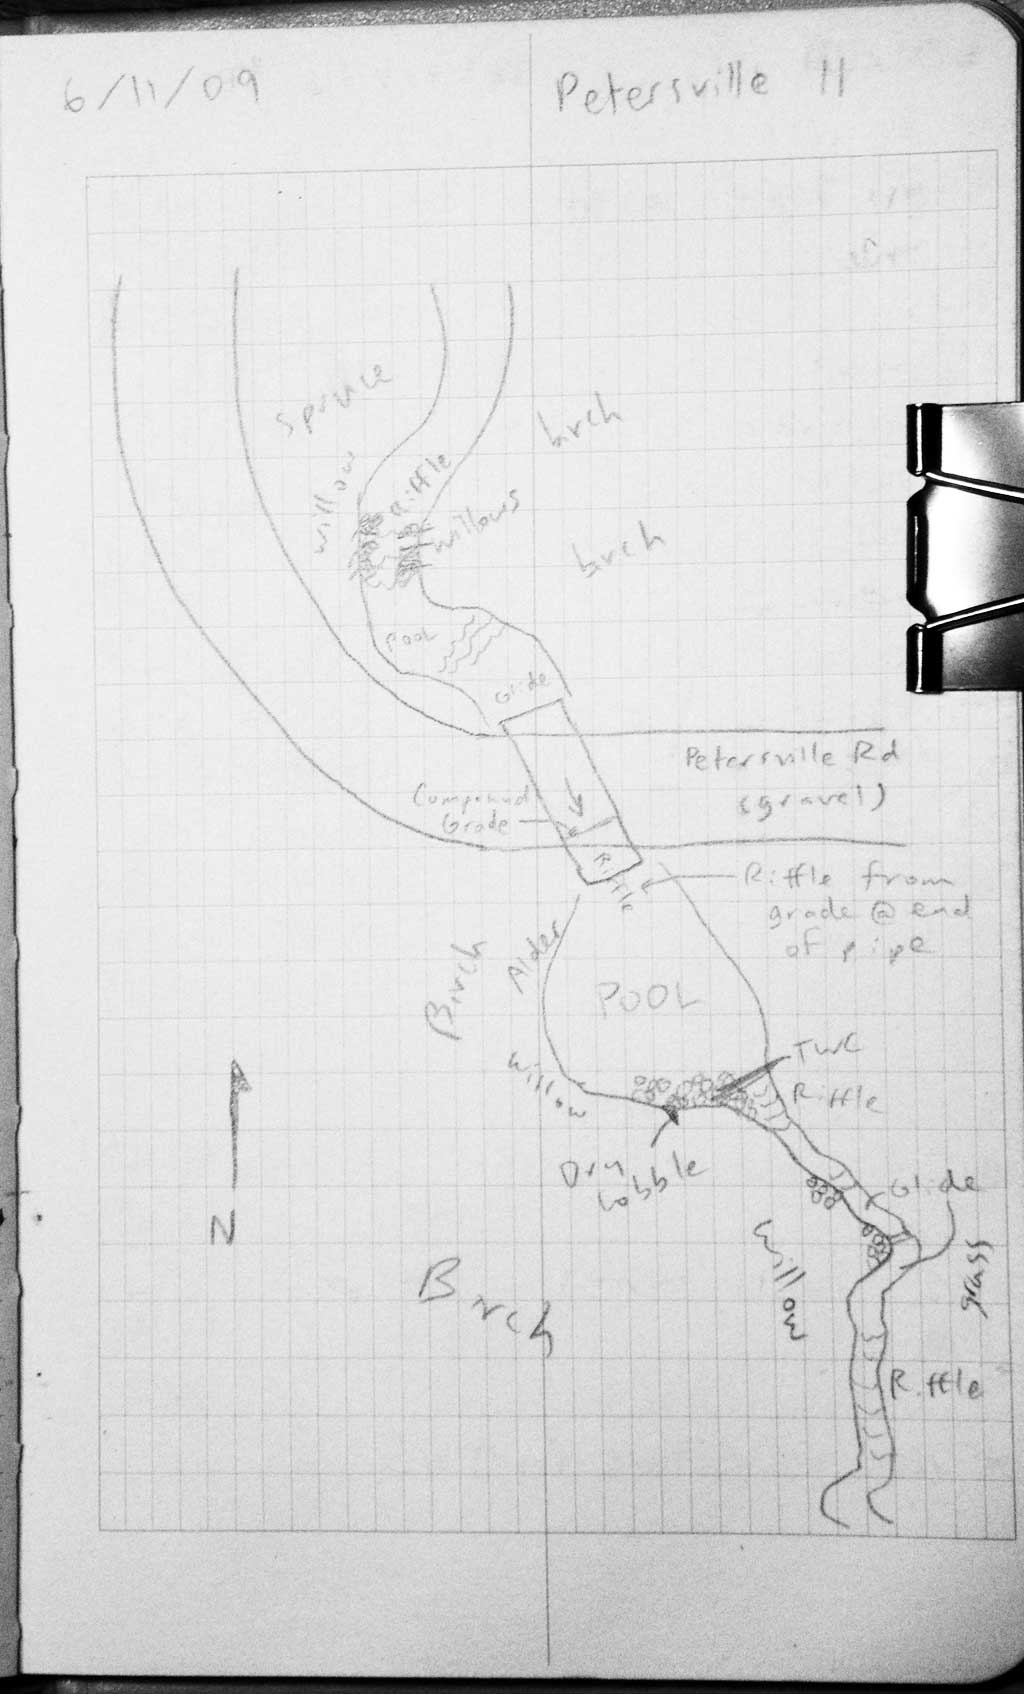 6/11/09
Petersville 11
Spruce
birch
willow
Riffle
willows
birch
Pool
Glide
Petersville Rd
(gravel)
Compound
Grade
Riffle
Riffle from
grade @ end
of pipe
Birch
Alder
POOL
TWC
Willow
Riffle
Dry
cobble
Glide
Willow
grass
N
Birch
Riffle